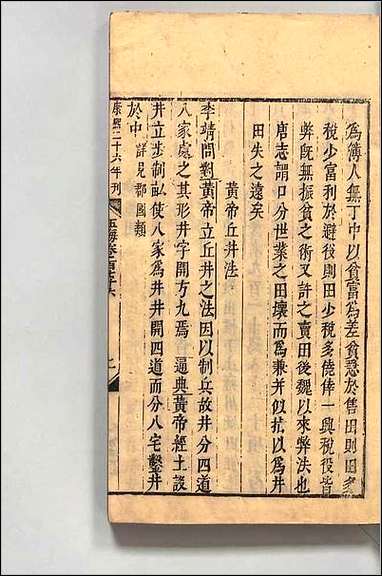 為簿人無丁中以貧富為差貧急於售田則田多
稅少富利於避役則田少稅多僥倖一興稅役皆
弊既無振貧之術又許之賣田後魏以來弊法也
唐志謂口分世業之田壞而為兼并似指以為井
田失之遠矣
黃帝丘井法
李靖問對黃帝立丘井之法因以制兵故井分四道
八家處之其形井字開方九焉 通典黃帝經土設
井立步制畝使八家為井井開四道而分八宅鑿井
於中 詳見郡國類
康熙二十六年刊
玉海卷百七十六
二